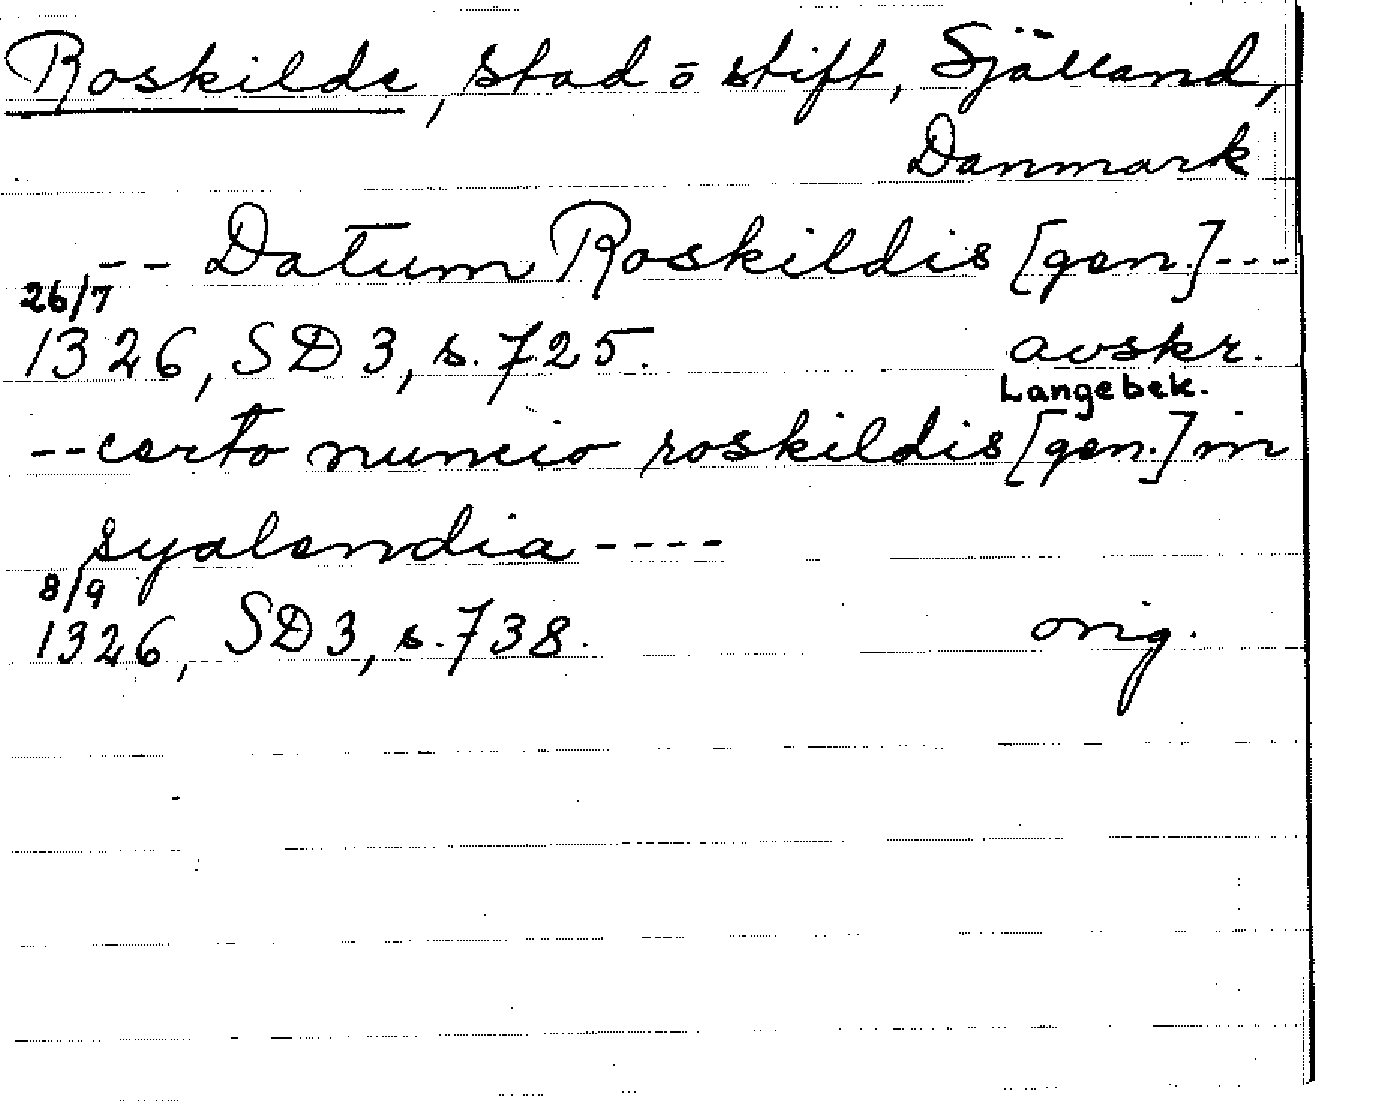 Roskilde, stad ō stift, Själland,
Danmark
-- Datum Roskildis [gen.]---
26/7
1326, SD 3, s. 725. avskr.
Langebek.
--certo nuncio roskildis [gen.] in
syalendia ----
8/9
1326, SD 3, s. 738. orig.